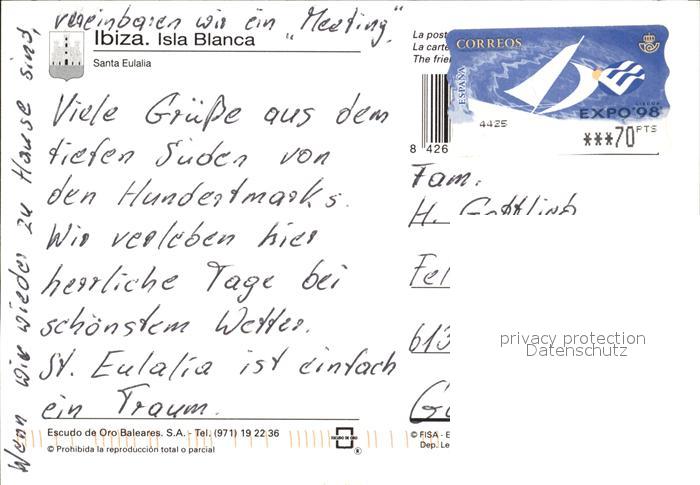 vereinbaren wir ein "Meeting".
Ibiza. Isla Blanca
Santa Eulalia
Viele Grüße aus dem
tiefen Süden von
den Hundertmarks.
Wir verleben hier
herrliche Tage bei
schönstem Wetter.
St. Eulalia ist einfach
ein Traum.
Wenn wir wieder zu Hause sind,
Escudo de Oro Baleares. S.A. - Tel. (971) 19 22 36
© Prohibida la reproducción total o parcial
ESCUDO DE ORO
®
La post
La carte
The frie
8 426
CORREOS
ESPAÑA
LISBOA
EXPO'98
4425
***70 PTS
Fam.
H. Gottlieb
Fel
613
G
© FISA - E
Dep. Le
privacy protection
Datenschutz